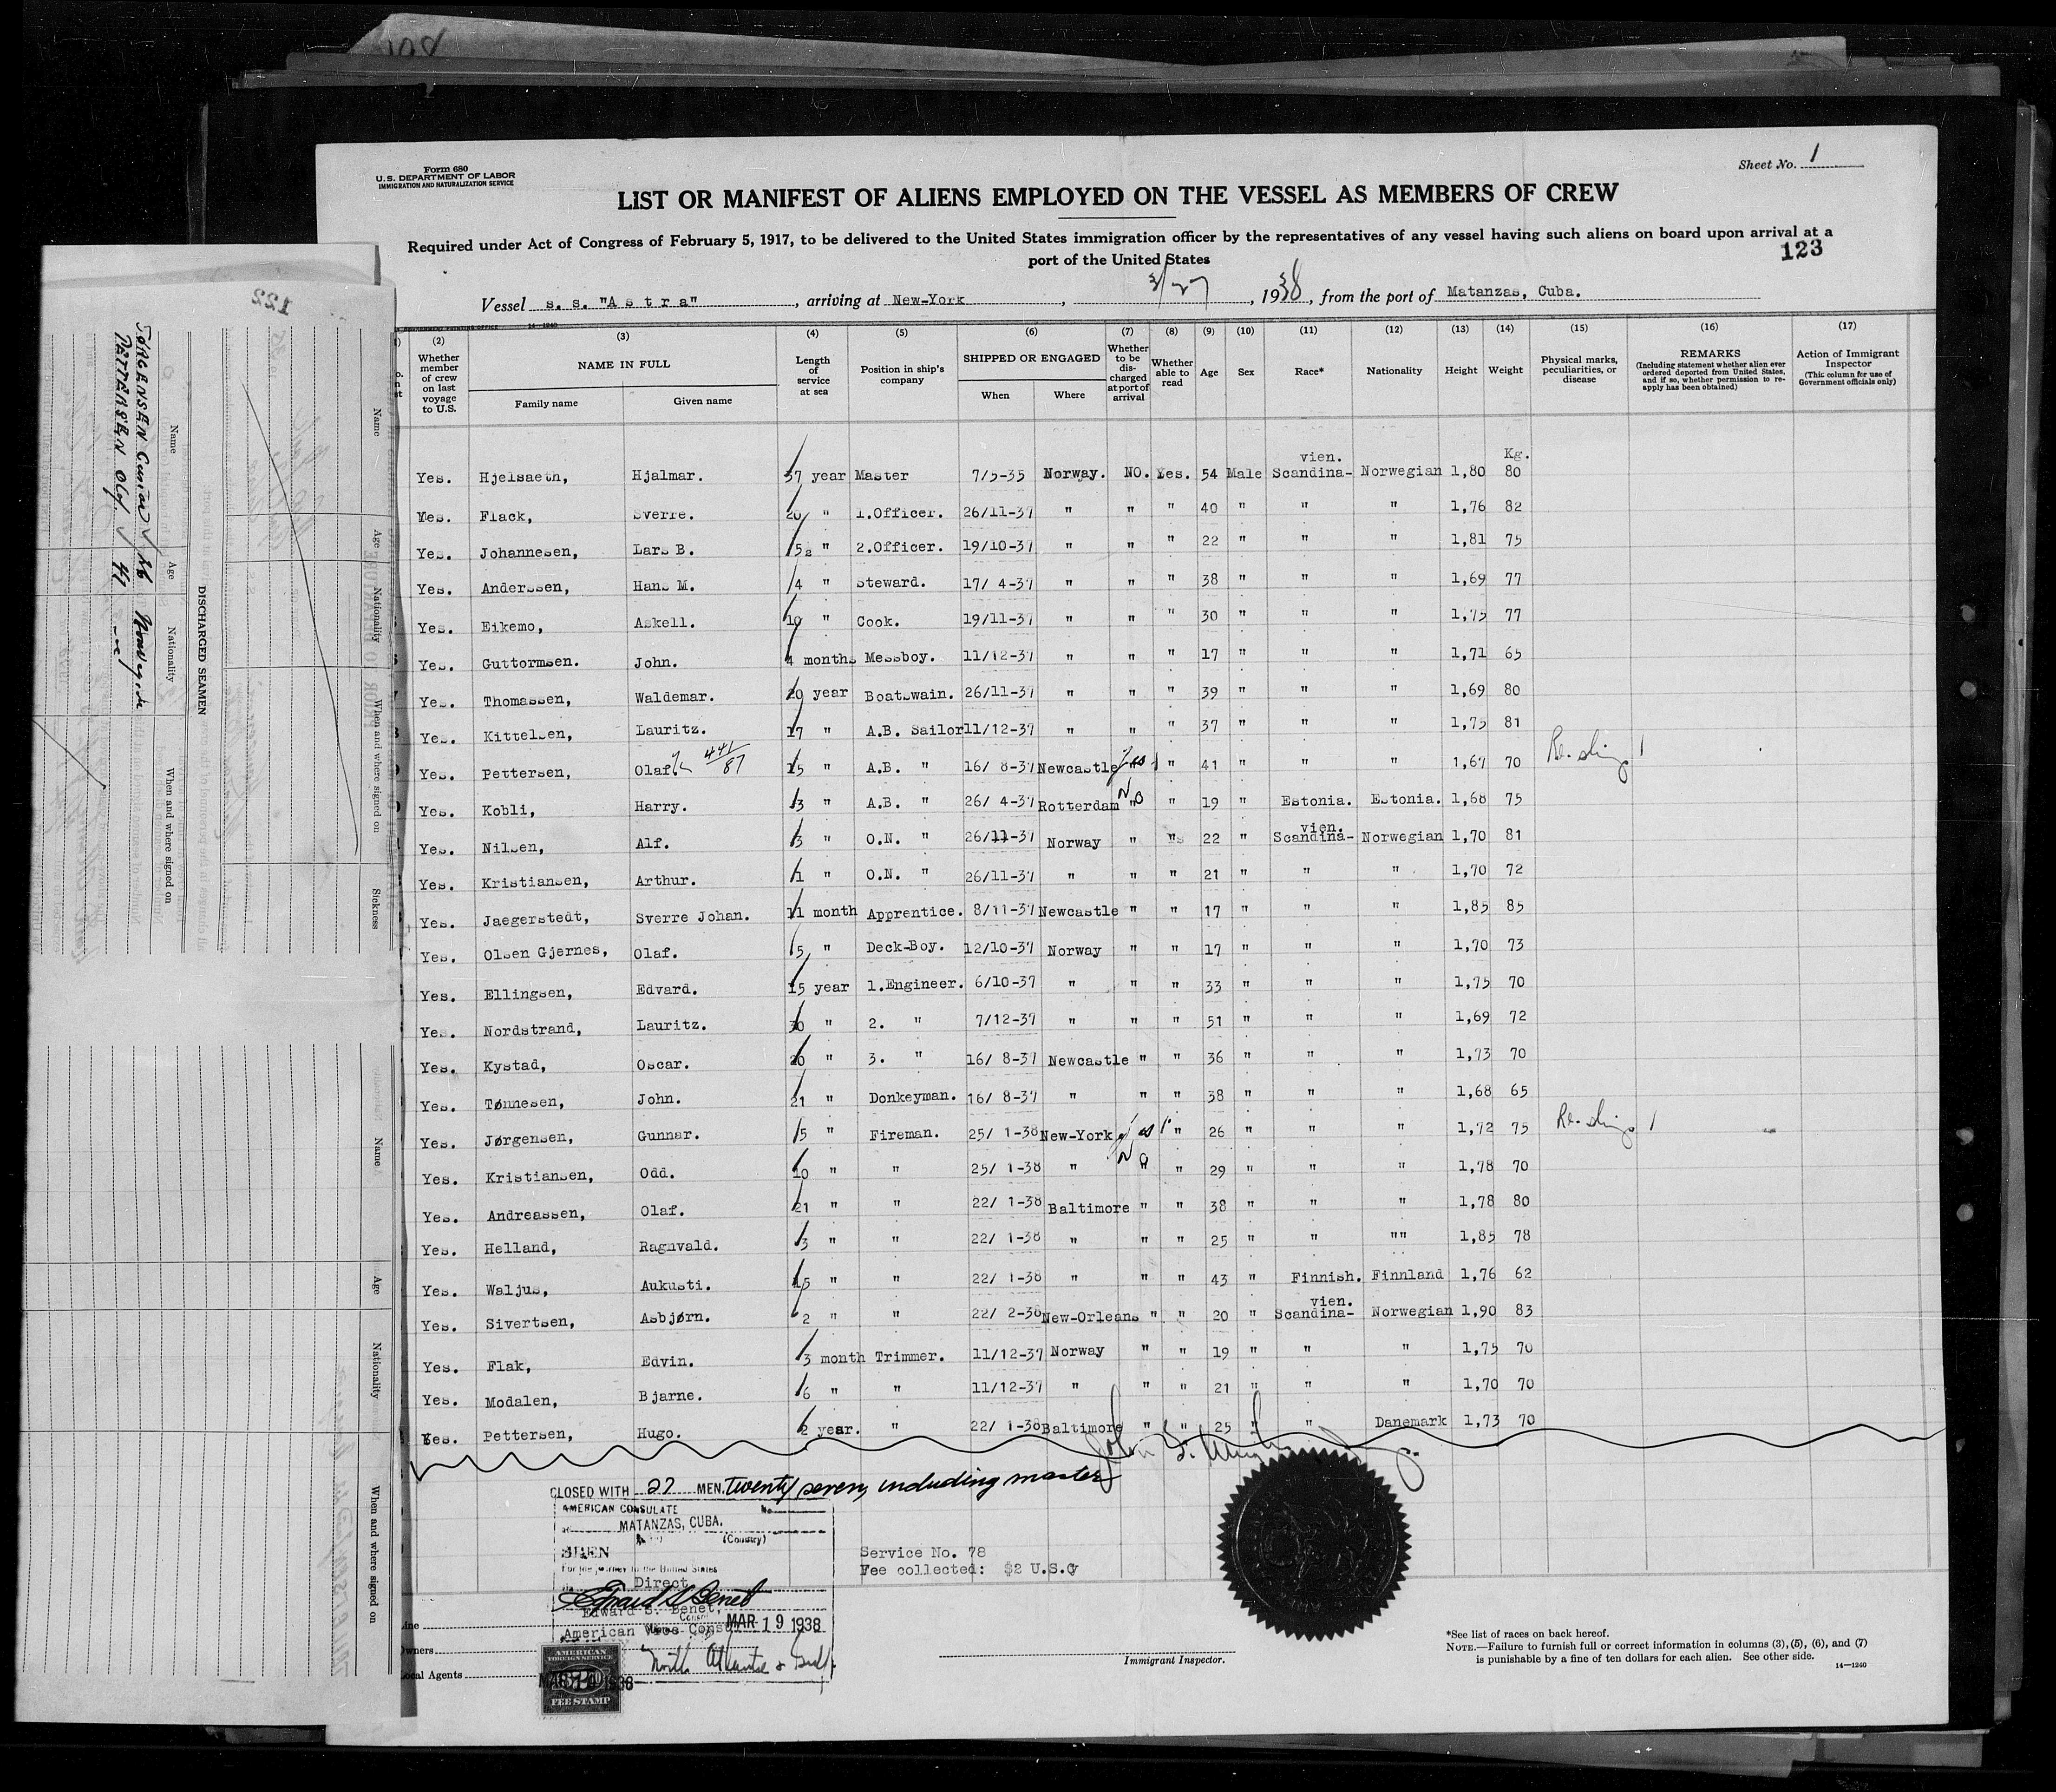 Form 680
U.S. DEPARTMENT OF LABOR
IMMIGRATION AND NATURALIZATION SERVICE
Sheet No. 1
LIST OR MANIFEST OF ALIENS EMPLOYED ON THE VESSEL AS MEMBERS OF CREW
Required under Act of Congress of February 5, 1917, to be delivered to the United States immigration officer by the representatives of any vessel having such aliens on board upon arrival at a
port of the United States
123
Vessel s. s. "Astra", arriving at New-York, 3/27, 1938, from the port of Matanzas, Cuba.
(2) (3) (4) (5) (6) (7) (8) (9) (10) (11) (12) (13) (14) (15) (16) (17)
Whether member of crew on last voyage to U.S.
NAME IN FULL
Family name Given name
Length of service at sea
Position in ship's company
SHIPPED OR ENGAGED
When Where
Whether to be discharged at port of arrival
Whether able to read
Age
Sex
Race*
Nationality
Height
Weight
Physical marks, peculiarities, or disease
REMARKS
(Including statement whether alien ever ordered deported from United States, and if so, whether permission to reapply has been obtained)
Action of Immigrant Inspector
(This column for use of Government officials only)
vien. Kg.
Yes. Hjelsaeth, Hjalmar. 37 year Master 7/5-35 Norway. NO. Yes. 54 Male Scandina- Norwegian 1,80 80
Yes. Flack, Sverre. 20 " 1.Officer. 26/11-37 " " " 40 " " " 1,76 82
Yes. Johannesen, Lars B. 5 " 2.Officer. 19/10-37 " " " 22 " " " 1,81 75
Yes. Anderssen, Hans M. 4 " Steward. 17/ 4-37 " " " 38 " " " 1,69 77
Yes. Eikemo, Askell. 10 " Cook. 19/11-37 " " " 30 " " " 1,75 77
Yes. Guttormsen. John. 4 months Messboy. 11/12-37 " " " 17 " " " 1,71 65
Yes. Thomassen, Waldemar. 20 year Boatswain. 26/11-37 " " " 39 " " " 1,69 80
Yes. Kittelsen, Lauritz. 17 " A.B. Sailor 11/12-37 " " " 37 " " " 1,75 81
Yes. Pettersen, Olaf. 441/87 15 " A.B. " 16/ 8-37 Newcastle yes " 41 " " " 1,67 70
Yes. Kobli, Harry. 3 " A.B. " 26/ 4-37 Rotterdam No " " 19 " Estonia. Estonia. 1,68 75
vien.
Yes. Nilsen, Alf. 3 " O.N. " 26/11-37 Norway " " 22 " Scandina- Norwegian 1,70 81
Yes. Kristiansen, Arthur. 1 " O.N. " 26/11-37 " " " 21 " " " 1,70 72
Yes. Jaegerstedt, Sverre Johan. 11 month Apprentice. 8/11-37 Newcastle " " 17 " " " 1,85 85
Yes. Olsen Gjernes, Olaf. 5 " Deck-Boy. 12/10-37 Norway " " 17 " " " 1,70 73
Yes. Ellingsen, Edvard. 15 year 1.Engineer. 6/10-37 " " " 33 " " " 1,75 70
Yes. Nordstrand, Lauritz. 30 " 2. " 7/12-37 " " " 51 " " " 1,69 72
Yes. Kystad, Oscar. 20 " 3. " 16/ 8-37 Newcastle " " 36 " " " 1,73 70
Yes. Tønnesen, John. 21 " Donkeyman. 16/ 8-37 " " " 38 " " " 1,68 65
Yes. Jørgensen, Gunnar. 5 " Fireman. 25/ 1-38 New-York yes " 26 " " " 1,72 75
Yes. Kristiansen, Odd. 10 " " 25/ 1-38 " No " " 29 " " " 1,78 70
Yes. Andreassen, Olaf. 21 " " 22/ 1-38 Baltimore " " 38 " " " 1,78 80
Yes. Helland, Ragnvald. 3 " " 22/ 1-38 " " " 25 " " "" 1,85 78
Yes. Waljus, Aukusti. 15 " " 22/ 1-38 " " " 43 " Finnish. Finnland 1,76 62
vien.
Yes. Sivertsen, Asbjørn. 2 " " 22/ 2-38 New-Orleans " " 20 " Scandina- Norwegian 1,90 83
Yes. Flak, Edvin. 3 month Trimmer. 11/12-37 Norway " " 19 " " " 1,75 70
Yes. Modalen, Bjarne. 6 " " 11/12-37 " " " 21 " " " 1,70 70
Yes. Pettersen, Hugo. 2 year. " 22/ 1-38 Baltimore " " 25 " " Danemark 1,73 70
CLOSED WITH 27 MEN. twenty seven, including master
AMERICAN CONSULATE No.
MATANZAS, CUBA.
(Country)
SEEN
For the journey to the United States
Direct
Edward S. Benet
Edward S. Benet,
American Vice Consul
MAR 19 1938
North Atlantic & Gulf
AMERICAN
FOREIGN SERVICE
FEE STAMP
Service No. 78
Fee collected: $2 U.S.Cy
Owners
Local Agents
Immigrant Inspector.
*See list of races on back hereof.
NOTE.—Failure to furnish full or correct information in columns (3), (5), (6), and (7)
is punishable by a fine of ten dollars for each alien. See other side.
14—1240
122
DISCHARGED SEAMEN
Name Age Nationality When and where signed on
JØRGENSEN Gunnar 26 Norwegian
PETTERSEN Olaf 41
Name Age Nationality When and where signed on Sickness
Name Age Nationality When and where signed on